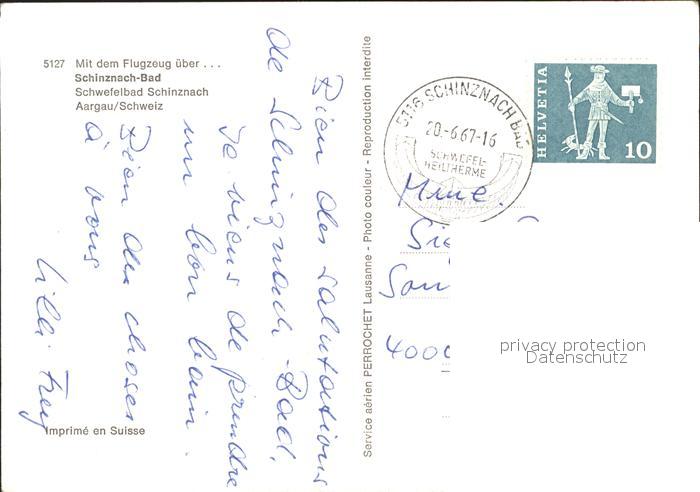 5127 Mit dem Flugzeug über . . .
Schinznach-Bad
Schwefelbad Schinznach
Aargau/Schweiz
Bien des salutations
de Schinznach-Bad,
Je viens de prendre
un bon bain.
Bien des choses
à vous
Frey
Imprimé en Suisse
Service aérien PERROCHET Lausanne - Photo couleur - Reproduction interdite
5116 SCHINZNACH BAD
20.-6.67-16
SCHWEFEL-
HEILTHERME
HELVETIA
10
Mme.
4000
privacy protection
Datenschutz